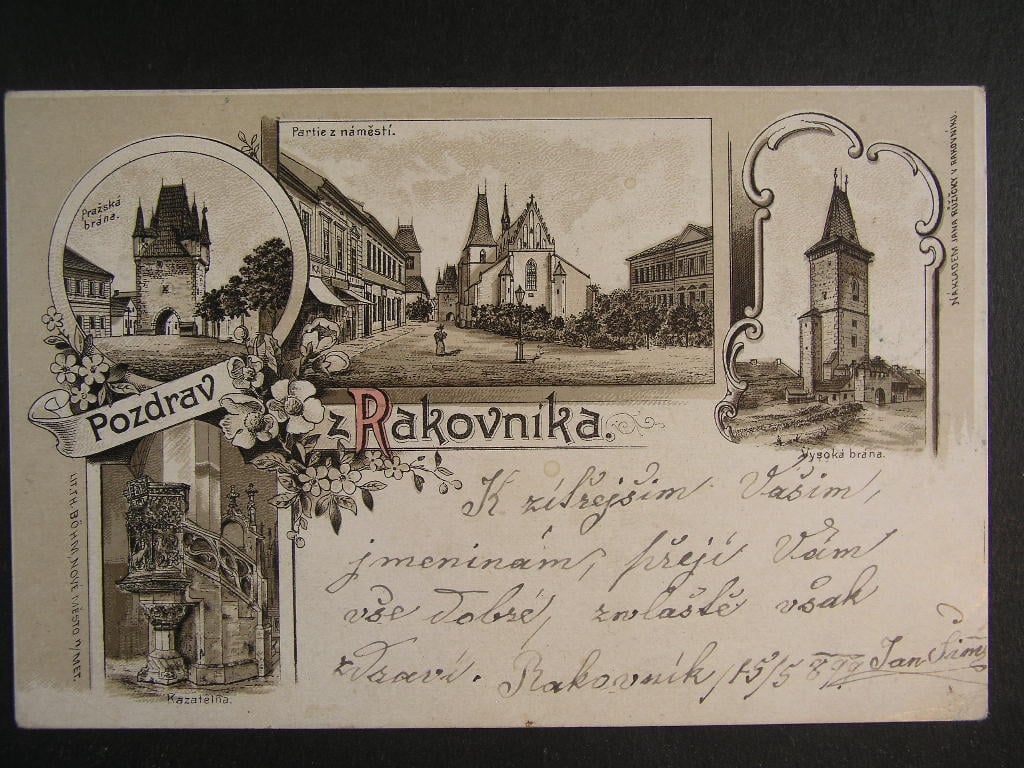 Partie z náměstí.
Pražská
brána.
Pozdrav
z Rakovníka.
Vysoká brána.
Kazatelna.
NÁKLADEM JANA RŮŽIČKY V RAKOVNÍKU.
LITF.TH.BÖHM, NOVÉ MĚSTO n/MET.
K zítřejším Vašim,
jmeninám, přeji Vám
vše dobré, zvláště však
zdraví. Rakovník 15/5 899 Jan